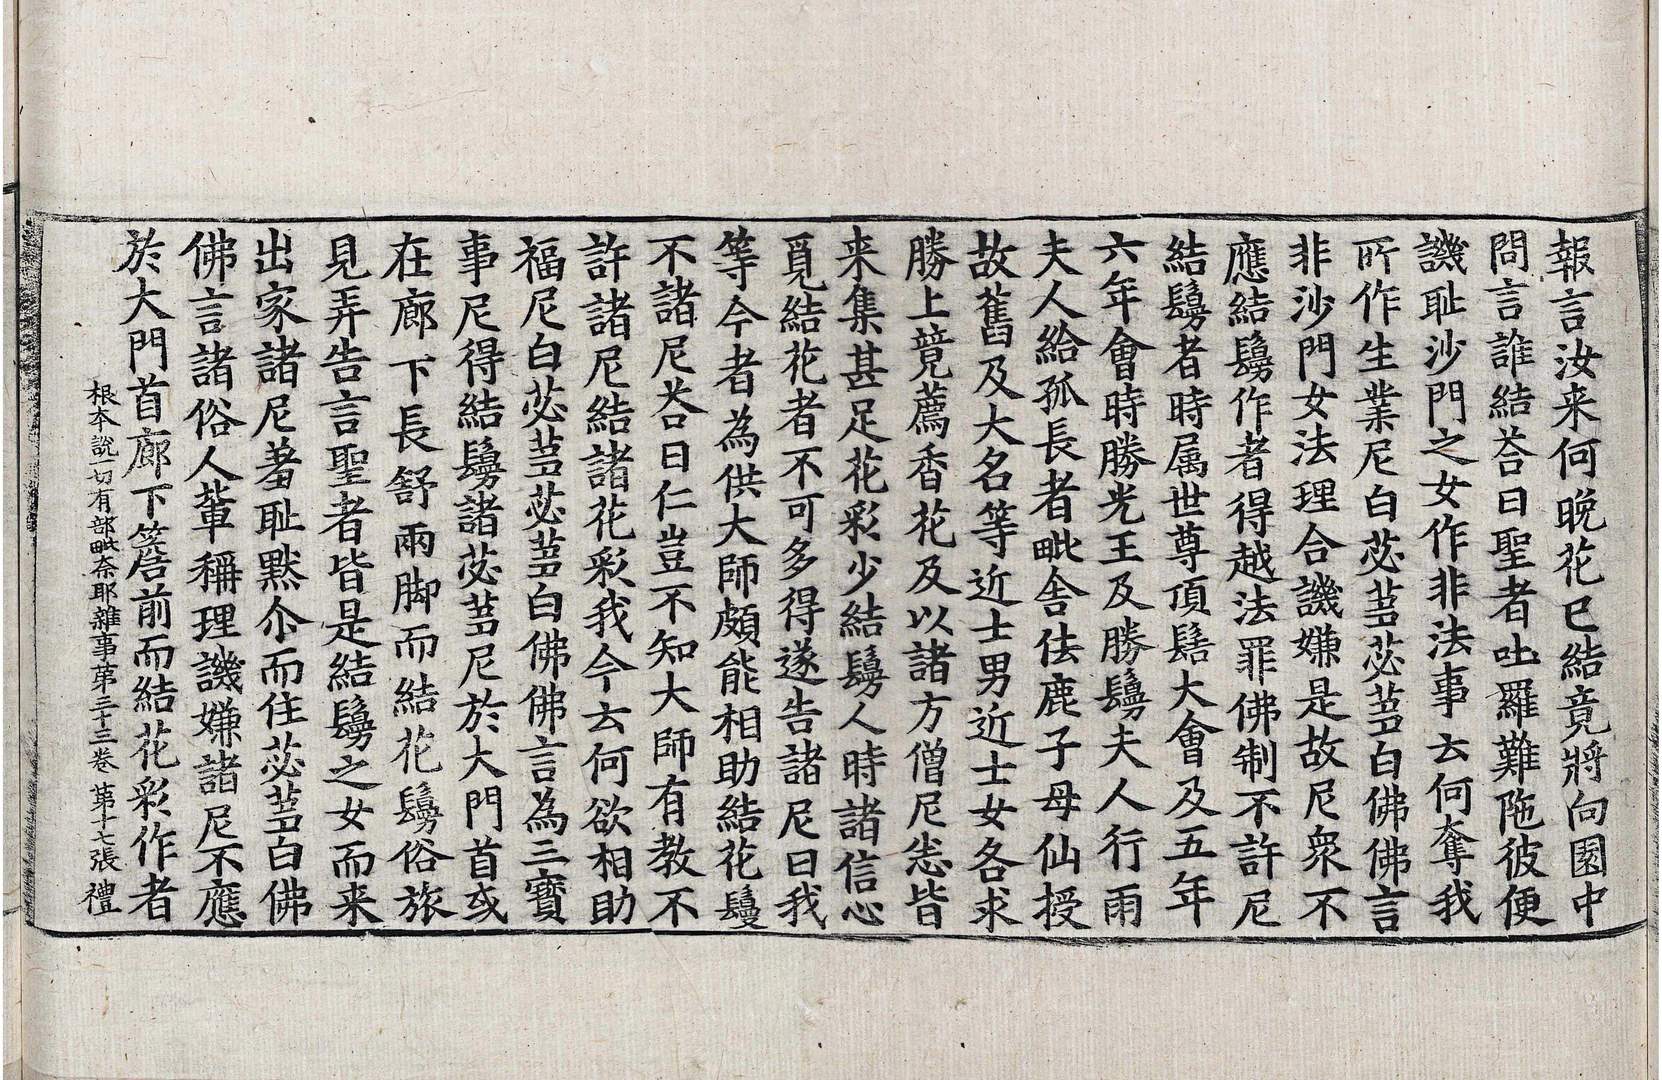 報言汝来何晚花已結竟將向園中
問言誰結荅曰聖者吐羅難陁彼便
譏耻沙門之女作非法事云何奪我
所作生業尼白苾蒭苾蒭白佛佛言
非沙門女法理合譏嫌是故尼衆不
應結鬘作者得越法罪佛制不許尼
結鬘者時属世尊頂髻大會及五年
六年會時勝光王及勝鬘夫人行雨
夫人給孤長者毗舍佉鹿子母仙授
故舊及大名等近士男近士女各求
勝上竟薦香花及以諸方僧尼悉皆
来集甚足花彩少結鬘人時諸信心
覓結花者不可多得遂告諸尼曰我
等今者為供大師頗能相助結花鬘
不諸尼荅曰仁豈不知大師有教不
許諸尼結諸花彩我今云何欲相助
福尼白苾蒭苾蒭白佛佛言為三寶
事尼得結鬘諸苾蒭尼於大門首或
在廊下長舒兩脚而結花鬘俗旅
見弄告言聖者皆是結鬘之女而来
出家諸尼羞耻黙尒而住苾蒭白佛
佛言諸俗人輩稱理譏嫌諸尼不應
於大門首廊下簷前而結花彩作者
根本說一切有部毗奈耶雜事第三十三卷 第十七張 禮